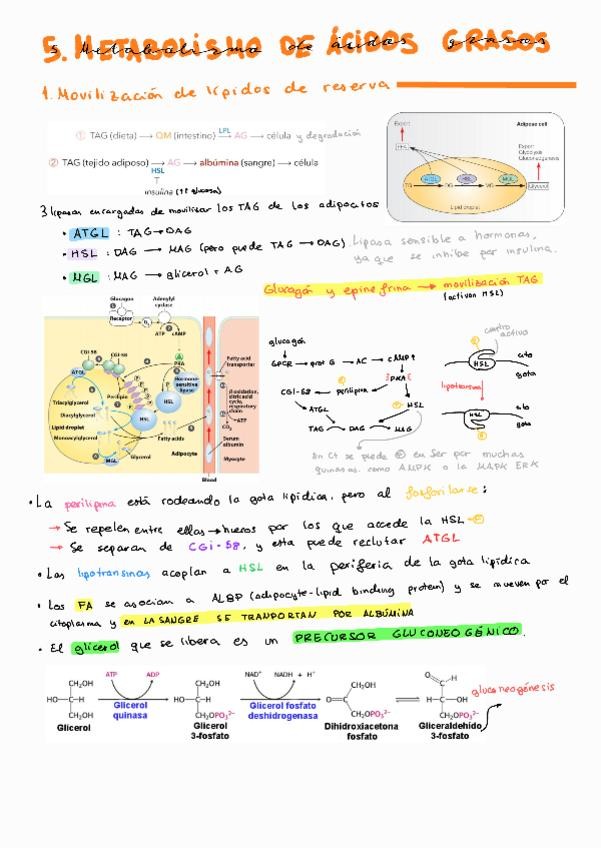 5. METABOLISMO DE ÁCIDOS GRASOS
1. Movilización de lípidos de reserva
① TAG (dieta) → QM (intestino) LPL → AG → célula y degradación
② TAG (tejido adiposo) → AG → albúmina (sangre) → célula
HSL
↑
insulina (↑↑ glucosa)
Export
Adipose cell
HSL
Export
Glycolysis
Gluconeogenesis
ATGL
HSL
MGL
TG
DG
MG
Glycerol
Lipid droplet
3 lipasas encargadas de movilizar los TAG de los adipocitos
• ATGL : TAG → DAG
• HSL : DAG → MAG (pero puede TAG → DAG)
Lipasa sensible a hormonas,
ya que se inhibe por insulina.
• MGL : MAG → glicerol + AG
Glucagón y epinefrina → movilización TAG
(activan HSL)
Glucagon
Adenylyl
cyclase
Receptor
ATP
cAMP
PKA
CGI-58
CGI-58
ATGL
Perilipin
Hormone-
sensitive
lipase
HSL
HSL
Triacylglycerol
Diacylglycerol
Lipid droplet
Monoacylglycerol
MGL
Glycerol
Fatty acids
Adipocyte
Blood
Fatty acid
transporter
β oxidation,
citric acid
cycle,
respiratory
chain
ATP
CO₂
Serum
albumin
Myocyte
glucagón
GPCR → prot G → AC → cAMP↑
PKA
CGI-58 ← perilipina
HSL
ATGL
TAG → DAG → MAG
centro
activo
HSL
cito
gota
lipotransina
HSL
cito
gota
En Ct se puede Ⓟ en Ser por muchas
quinasas, como AMPK o la MAPK ERK
• La perilipina está rodeando la gota lipídica, pero al fosforilarse:
→ Se repelen entre ellas → huecos por los que accede la HSL-Ⓟ
→ Se separan de CGI-58, y esta puede reclutar ATGL
• Las lipotransinas acoplan a HSL en la periferia de la gota lipídica
• Los FA se asocian a ALBP (adipocyte-lipid binding protein) y se mueven por el
citoplasma y EN LA SANGRE SE TRANPORTAN POR ALBÚMINA
• El glicerol que se libera es un PRECURSOR GLUCONEOGÉNICO.
ATP ADP
NAD⁺ NADH + H⁺
CH₂OH
HO—C—H
CH₂OH
Glicerol
Glicerol
quinasa
CH₂OH
HO—C—H
CH₂OPO₃²⁻
Glicerol
3-fosfato
Glicerol fosfato
deshidrogenasa
CH₂OH
O=C
CH₂OPO₃²⁻
Dihidroxiacetona
fosfato
O H
C
H—C—OH
CH₂OPO₃²⁻
Gliceraldehído
3-fosfato
gluconeogénesis